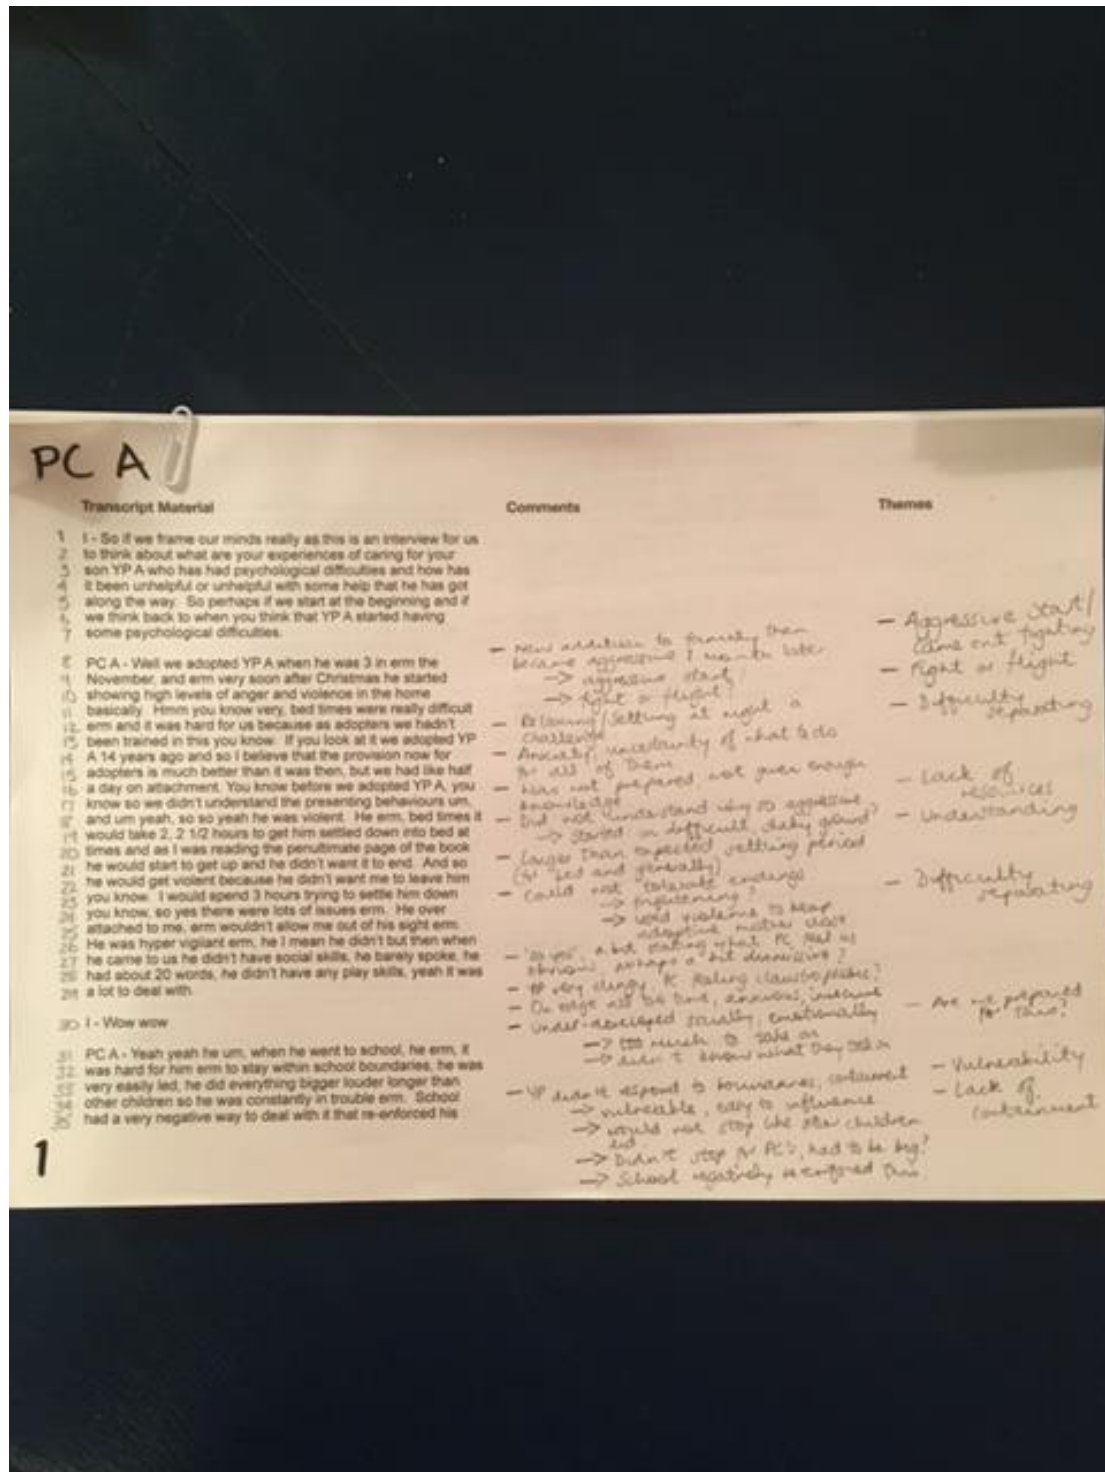 PC A
Transcript Material
1 I - So if we frame our minds really as this is an interview for us
2 to think about what are your experiences of caring for your
3 son YP A who has had psychological difficulties and how has
4 it been unhelpful or unhelpful with some help that he has got
5 along the way. So perhaps if we start at the beginning and if
6 we think back to when you think that YP A started having
7 some psychological difficulties.
8 PC A - Well we adopted YP A when he was 3 in erm the
9 November, and erm very soon after Christmas he started
10 showing high levels of anger and violence in the home
11 basically. Hmm you know very, bed times were really difficult
12 erm and it was hard for us because as adopters we hadn't
13 been trained in this you know. If you look at it we adopted YP
14 A 14 years ago and so I believe that the provision now for
15 adopters is much better than it was then, but we had like half
16 a day on attachment. You know before we adopted YP A, you
17 know so we didn't understand the presenting behaviours um,
18 and um yeah, so so yeah he was violent. He erm, bed times it
19 would take 2, 2 1/2 hours to get him settled down into bed at
20 times and as I was reading the penultimate page of the book
21 he would start to get up and he didn't want it to end. And so
22 he would get violent because he didn't want me to leave him
23 you know. I would spend 3 hours trying to settle him down
24 you know, so yes there were lots of issues erm. He over
25 attached to me, erm wouldn't allow me out of his sight erm.
26 He was hyper vigilant erm, he I mean he didn't but then when
27 he came to us he didn't have social skills, he barely spoke, he
28 had about 20 words, he didn't have any play skills, yeah it was
29 a lot to deal with.
30 I - Wow wow
31 PC A - Yeah yeah he um, when he went to school, he erm, it
32 was hard for him erm to stay within school boundaries, he was
33 very easily led, he did everything bigger louder longer than
34 other children so he was constantly in trouble erm. School
35 had a very negative way to deal with it that re-enforced his
1
Comments
- New addition to family then
became aggressive 1 month later
-> aggressive start?
-> fight or flight?
- Relaxing/settling at night a
challenge
- Anxiety, uncertainty of what to do
for all of them
- Was not prepared not given enough
knowledge
- Did not understand why so aggressive
-> started on difficult, shaky ground?
- Longer than expected settling period
(for bed and generally)
- Could not tolerate endings
-> frightening?
-> used violence to keep
adoptive mother close
- 'so yes', a bit stating what PC feel is
obvious, perhaps a bit dismissive?
- YP very clingy, PC feeling claustrophobic?
- On edge all the time, anxious, insecure
- under-developed socially, emotionally
-> too much to take on
-> didn't know what they took on
- YP didn't respond to boundaries, containment
-> vulnerable, easy to influence
-> would not stop like other children
did
-> Didn't stop for PC's, had to be big?
-> School negatively re-enforced this.
Themes
- Aggressive start/
came out fighting
- Fight or flight
- Difficulty
separating
- Lack of
resources
- Understanding
- Difficulty
separating
- Are we prepared
for this?
- Vulnerability
- Lack of
containment